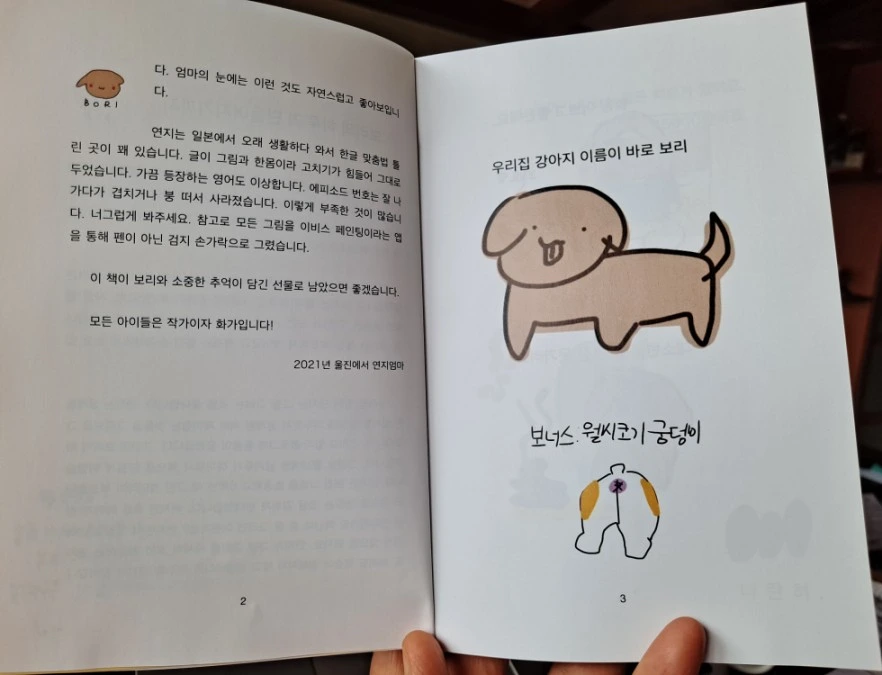 BORI
다. 엄마의 눈에는 이런 것도 자연스럽고 좋아보입니
다.
연지는 일본에서 오래 생활하다 와서 한글 맞춤법 틀
린 곳이 꽤 있습니다. 글이 그림과 한몸이라 고치기가 힘들어 그대로
두었습니다. 가끔 등장하는 영어도 이상합니다. 에피소드 번호는 잘 나
가다가 겹치거나 붕 떠서 사라졌습니다. 이렇게 부족한 것이 많습니
다. 너그럽게 봐주세요. 참고로 모든 그림을 이비스 페인팅이라는 앱
을 통해 펜이 아닌 검지 손가락으로 그렸습니다.
이 책이 보리와 소중한 추억이 담긴 선물로 남았으면 좋겠습니다.
모든 아이들은 작가이자 화가입니다!
2021년 울진에서 연지엄마
2
우리집 강아지 이름이 바로 보리
보너스. 월시코기 궁덩이
3